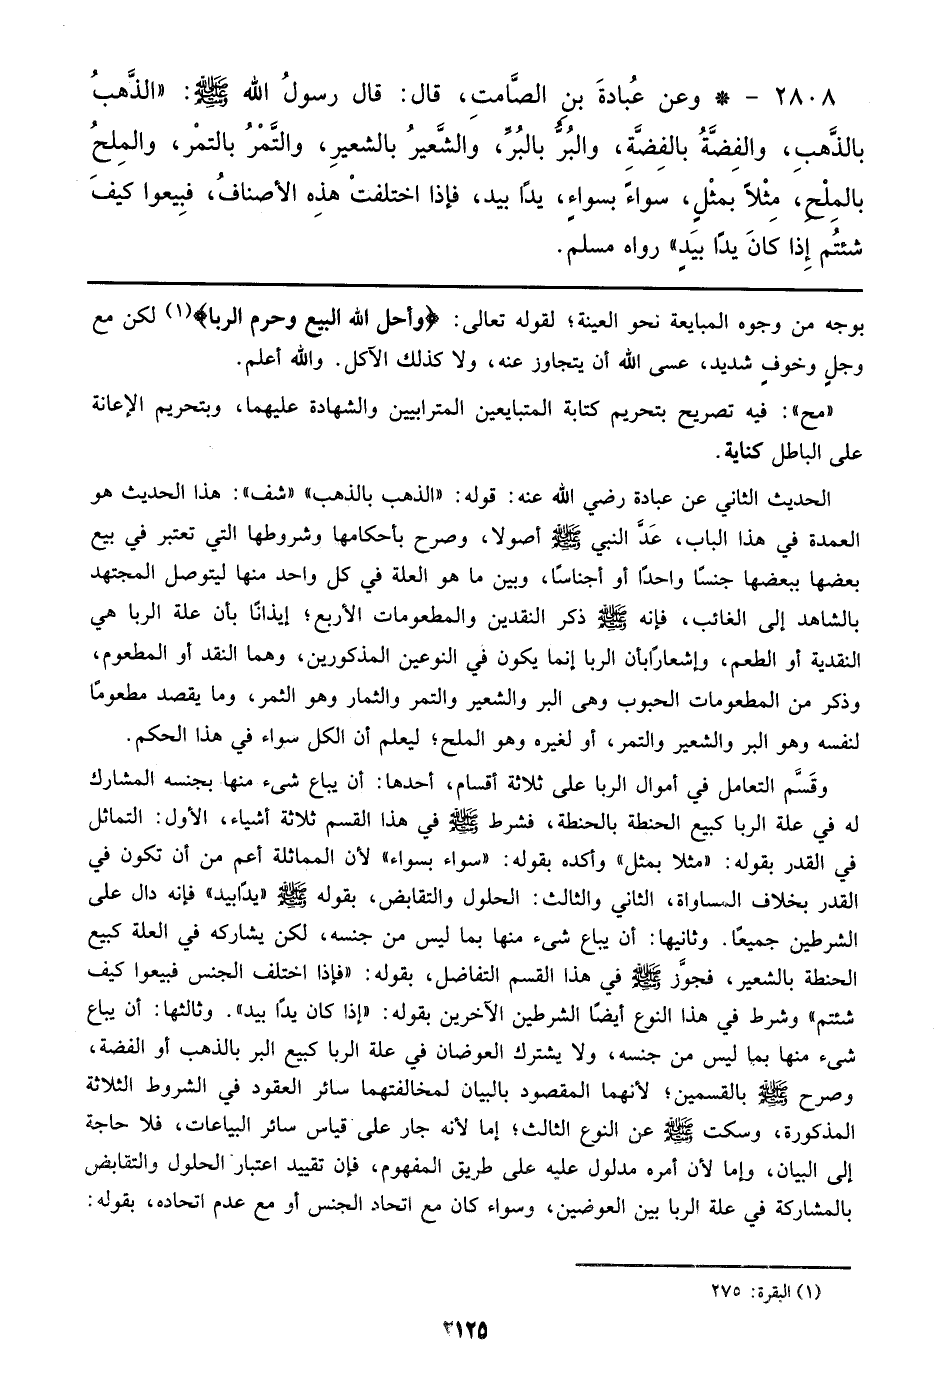 ٢٨٠٨ – * وعن عُبادةَ بنِ الصَّامتِ، قال: قال رسولُ الله ﷺ: «الذَّهبُ
بالذَّهبِ، والفِضَّةُ بالفِضَّةِ، والبُرُّ بالبُرِّ، والشَّعيرُ بالشعيرِ، والتَّمْرُ بالتمْرِ، والمِلحُ
بالمِلْحِ، مِثْلاً بمثْلٍ، سواءً بسواءٍ، يدًا بيد، فإذا اختلفتْ هذِه الأصنافُ، فبِيعوا كيفَ
شئتُم إِذا كانَ يدًا بيَدٍ» رواه مسلم.
بوجه من وجوه المبايعة نحو العينة؛ لقوله تعالى: ﴿وأحل الله البيع وحرم الربا﴾(١) لكن مع
وجلٍ وخوفٍ شديد، عسى الله أن يتجاوز عنه، ولا كذلك الآكل. والله أعلم.
«مح»: فيه تصريح بتحريم كتابة المتبايعين المترابيين والشهادة عليهما، وبتحريم الإعانة
على الباطل كناية.
الحديث الثاني عن عبادة رضي الله عنه: قوله: «الذهب بالذهب» «شف»: هذا الحديث هو
العمدة في هذا الباب، عَدَّ النبي ﷺ أصولا، وصرح بأحكامها وشروطها التي تعتبر في بيع
بعضها ببعضها جنسًا واحدًا أو أجناسًا، وبين ما هو العلة في كل واحد منها ليتوصل المجتهد
بالشاهد إلى الغائب، فإنه ﷺ ذكر النقدين والمطعومات الأربع؛ إيذانًا بأن علة الربا هي
النقدية أو الطعم، وإشعارًابأن الربا إنما يكون في النوعين المذكورين، وهما النقد أو المطعوم،
وذكر من المطعومات الحبوب وهى البر والشعير والتمر والثمار وهو الثمر، وما يقصد مطعومًا
لنفسه وهو البر والشعير والتمر، أو لغيره وهو الملح؛ ليعلم أن الكل سواء في هذا الحكم.
وقَسَّم التعامل في أموال الربا على ثلاثة أقسام، أحدها: أن يباع شىء منها بجنسه المشارك
له في علة الربا كبيع الحنطة بالحنطة، فشرط ﷺ في هذا القسم ثلاثة أشياء، الأول: التماثل
في القدر بقوله: «مثلا بمثل» وأكده بقوله: «سواء بسواء» لأن المماثلة أعم من أن تكون في
القدر بخلاف المساواة، الثاني والثالث: الحلول والتقابض، بقوله ﷺ «يدًابيد» فإنه دال على
الشرطين جميعًا. وثانيها: أن يباع شىء منها بما ليس من جنسه، لكن يشاركه في العلة كبيع
الحنطة بالشعير، فجوَّز ﷺ في هذا القسم التفاضل، بقوله: «فإذا اختلف الجنس فبيعوا كيف
شئتم» وشرط في هذا النوع أيضًا الشرطين الآخرين بقوله: «إذا كان يدًا بيد». وثالثها: أن يباع
شىء منها بما ليس من جنسه، ولا يشترك العوضان في علة الربا كبيع البر بالذهب أو الفضة،
وصرح ﷺ بالقسمين؛ لأنهما المقصود بالبيان لمخالفتهما سائر العقود في الشروط الثلاثة
المذكورة، وسكت ﷺ عن النوع الثالث؛ إما لأنه جار على قياس سائر البياعات، فلا حاجة
إلى البيان، وإما لأن أمره مدلول عليه على طريق المفهوم، فإن تقييد اعتبار الحلول والتقابض
بالمشاركة في علة الربا بين العوضين، وسواء كان مع اتحاد الجنس أو مع عدم اتحاده، بقوله:
(١) البقرة: ٢٧٥
٣١٢٥